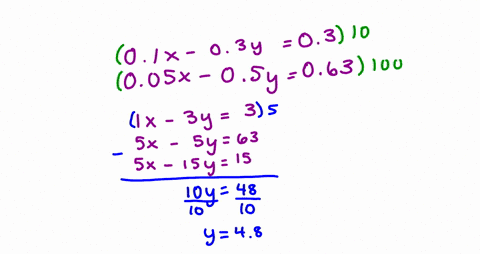 (0.1x - 0.3y = 0.3) 10
(0.05x - 0.5y = 0.63) 100
(1x - 3y = 3) 5
5x - 5y = 63
- 5x - 15y = 15
10y = 48
10 10
y = 4.8